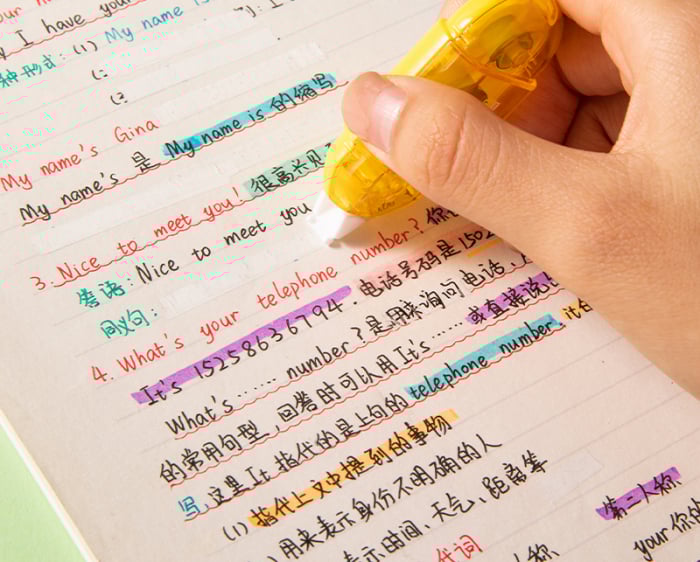 I have your
种形式: (1) My name
(2
(3
My name's Gina
My name's 是 My name is 的缩写
3. Nice to meet you! 很高兴见
答语: Nice to meet you
同义句:
4. What's your telephone number? 你
It's 15258636794. 电话号码是 1502
What's …… number? 是用来询问电话.
的常用句型, 回答时可以用 It's …… 或直接说
写, 这里 It 指代的是上句的 telephone number, it
(1) 指代上文中提到的事物
用来表示身份不明确的人
表示时间、天气、距离等
第二人称
代词
人称
your 你